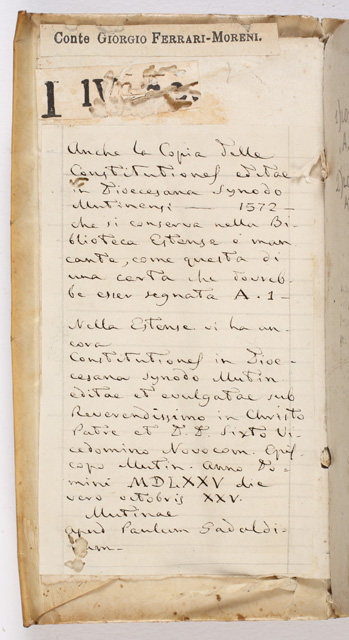 Conte GIORGIO FERRARI-MORENI.
I IV
Anche la Copia delle
Constitutiones editae
in Dioecesana Synodo
Mutinensi — 1572 —
che si conserva nella Bi-
blioteca Estense è man
cante, come questa di
una carta che dovreb-
be esser segnata A. 1 —
Nella Estense vi ha an-
cora
Constitutiones in Dioe-
cesana synodo Mutin.
editae et evulgatae sub
Reverendissimo in Christo
Patre et D. D. Sixto Vi
cedomino Novocom. Epis
copo Mutin. Anno Do-
mini MDLXXV die
vero octobris XXV.
Mutinae
apud Paulum Gadaldi-
num —